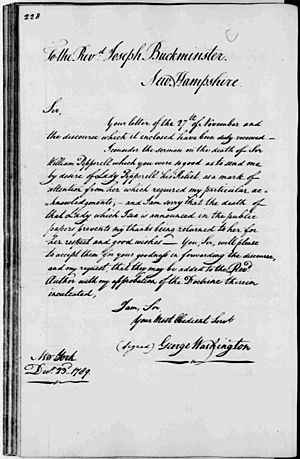 228
To the Revd. Joseph Buckminster.
New Hampshire.
Sir,
Your letter of the 27th of November and
the discourse which it enclosed have been duly received —
I consider the sermon on the death of Sir
William Pepperell which you were so good as to send me
by desire of Lady Pepperell his Relict, as a mark of
attention from her which required my particular ac-
knowledgments; – and I am sorry that the death of
that Lady which I see is announced in the public
papers prevents my thanks being returned to her for
her respect and good wishes — You, Sir, will please
to accept them for your goodness in forwarding the discourse,
and my request, that they may be added to the Revd.
Author with my approbation of the Doctrine therein
inculcated,
I am, Sir
Your Most Obedient Servt
(signed) George Washington
New York
Decr. 23d. 1789.